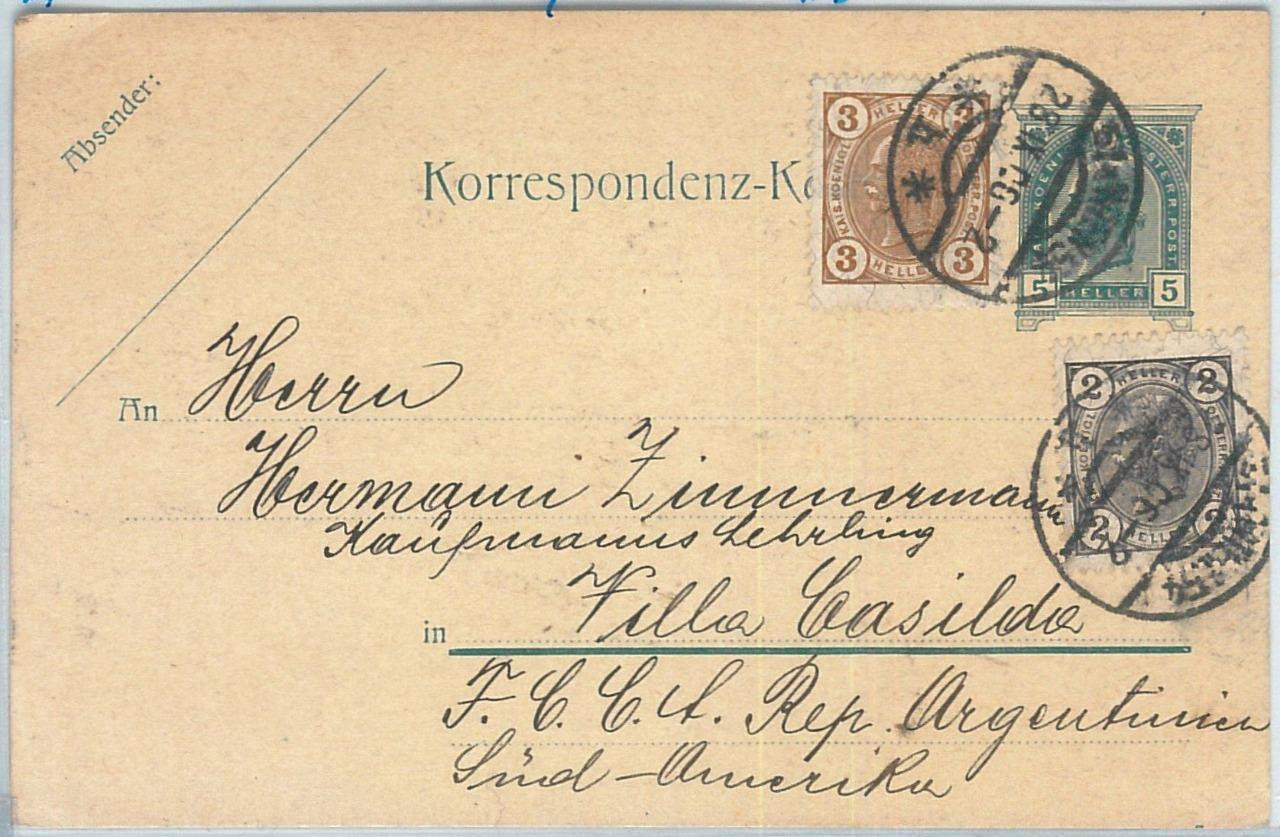 Absender:
Korrespondenz-K
3 HELLER 3
KAIS. KOENIGL.
3 HELLER 3
KOENIGL. OESTERR. POST.
5 HELLER 5
28 XI 06-2
An Herrn
Hermann Zimmermann
Kaufmanns Lehrling
in Villa Casilda
F. C. C. A. Rep. Argentinien
Süd-Amerika
2 HELLER 2
KOENIGL. OESTERR.
2 HELLER 2